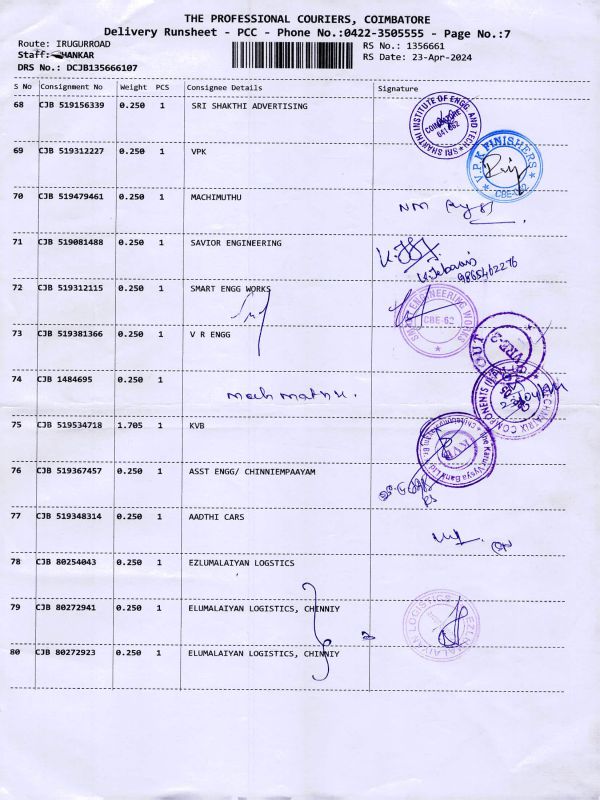 THE PROFESSIONAL COURIERS, COIMBATORE
Delivery Runsheet - PCC - Phone No.:0422-3505555 - Page No.:7
Route: IRUGURROAD
RS No.: 1356661
Staff: SHANKAR
RS Date: 23-Apr-2024
DRS No.: DCJB135666107
S No Consignment No Weight PCS Consignee Details Signature
68 CJB 519156339 0.250 1 SRI SHAKTHI ADVERTISING
SRI SHAKTHI INSTITUTE OF ENGG AND TECH
COIMBATORE
641 062
69 CJB 519312227 0.250 1 VPK
V.P.K FINISHERS
CBE-62
70 CJB 519479461 0.250 1 MACHIMUTHU
71 CJB 519081488 0.250 1 SAVIOR ENGINEERING
9865462276
72 CJB 519312115 0.250 1 SMART ENGG WORKS
SMART ENGINEERING WORKS
CBE-62
73 CJB 519381366 0.250 1 V R ENGG
74 CJB 1484695 0.250 1
COMPONENTS
75 CJB 519534718 1.705 1 KVB
The Karur Vysya Bank Ltd.
KVB
76 CJB 519367457 0.250 1 ASST ENGG/ CHINNIEMPAAYAM
77 CJB 519348314 0.250 1 AADTHI CARS
78 CJB 80254043 0.250 1 EZLUMALAIYAN LOGSTICS
79 CJB 80272941 0.250 1 ELUMALAIYAN LOGISTICS, CHENNIY
EZLUMALAIYAN LOGISTICS
80 CJB 80272923 0.250 1 ELUMALAIYAN LOGISTICS, CHINNIY